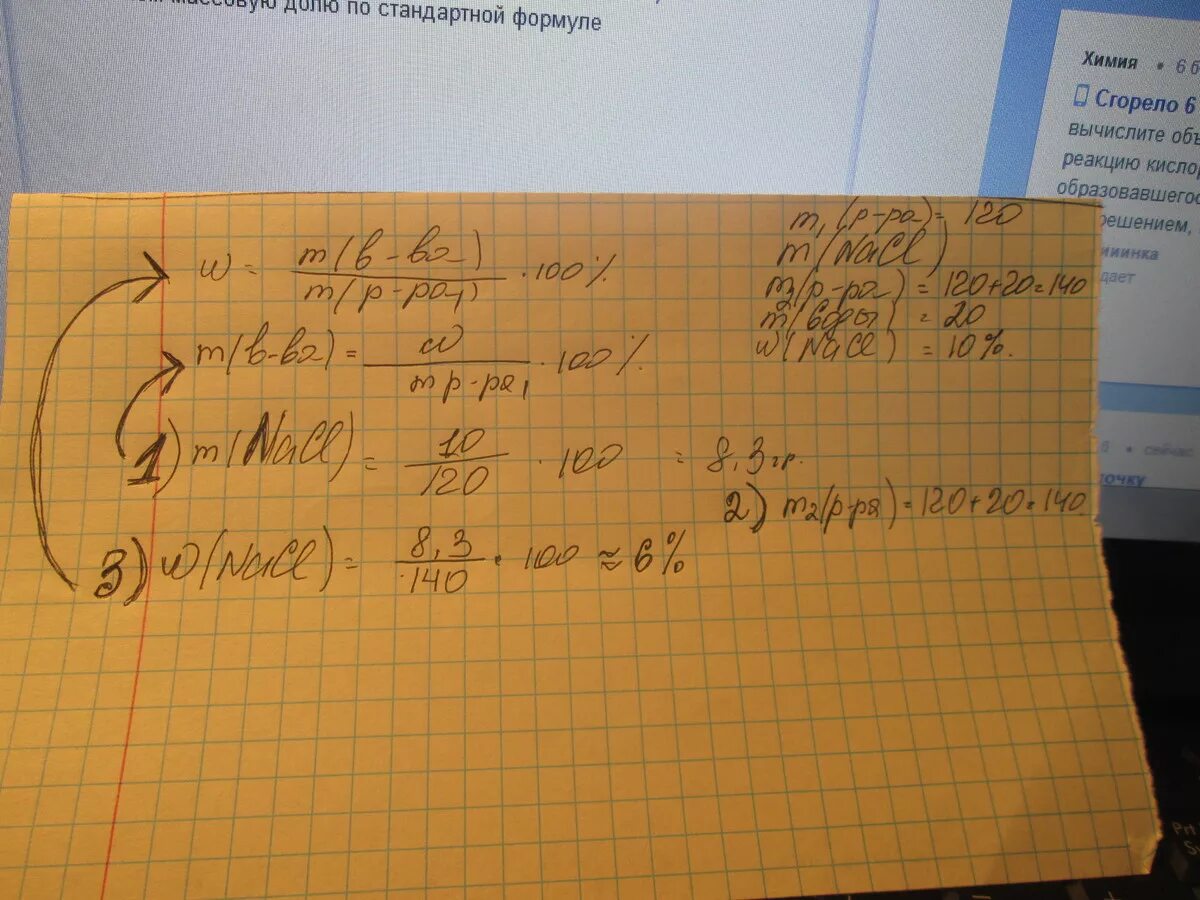 массовую долю по стандартной формуле
Химия • 6 б
Сгорело 6
вычислите объ
реакцию кислор
образовавшегос
решением,
дает
сейчас
m₁(р-ра) = 120
m(NaCl)
m₂(р-ра) = 120+20=140
m(воды) = 20
w(NaCl) = 10%.
w = m(в-ва) / m(р-ра₁) · 100%
m(в-ва) = w / m р-ра₁ · 100%
1) m(NaCl) = 10 / 120 · 100 = 8,3 гр.
2) m₂(р-ра) = 120+20=140
3) w(NaCl) = 8,3 / 140 · 100 ≈ 6%